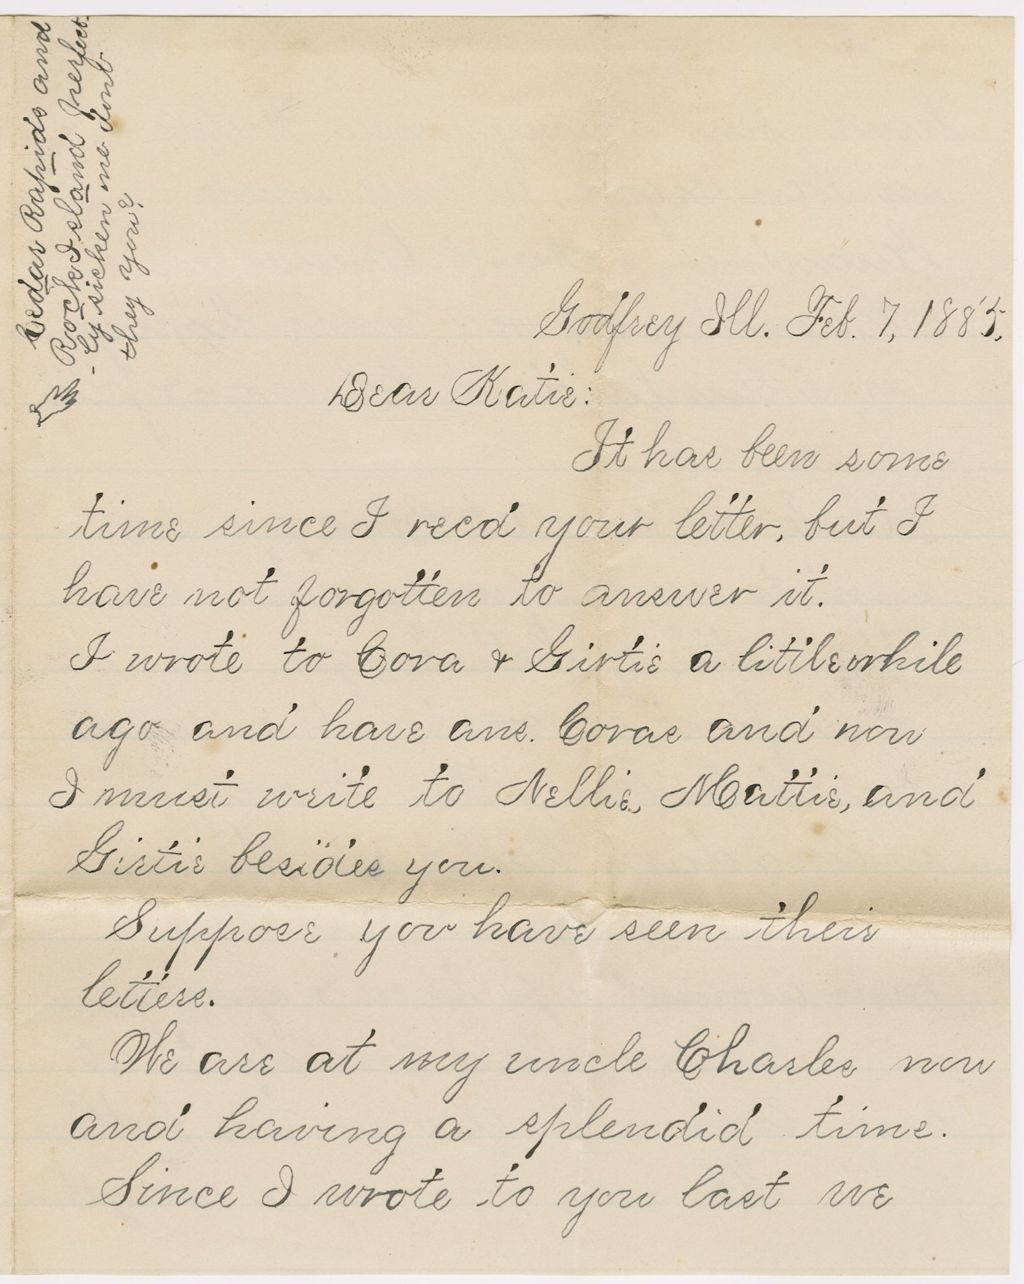 Cedar Rapids and
Rock Island perfect-
ly sicken me dont
they you?
Godfrey Ill. Feb. 7, 1885.
Dear Katie:
It has been some
time since I recd your letter, but I
have not forgotten to answer it.
I wrote to Cora & Girtie a little while
ago and have ans. Coras and now
I must write to Nellie, Mattie, and
Girtie besides you.
Suppose you have seen their
letters.
We are at my uncle Charles now
and having a splendid time.
Since I wrote to you last we